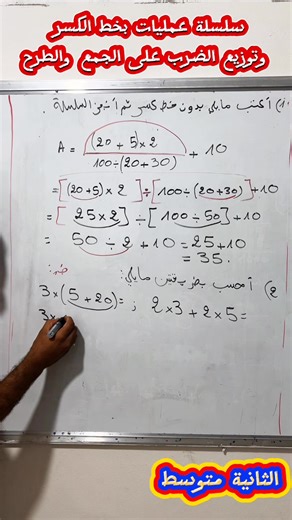 سلسلة عمليات بخط الكسر
وتوزيع الضرب على الجمع والطرح
1) أكتب مايلي بدون خط كسر ثم أنجز السلسلة.
A = (20 + 5) × 2 / 100 ÷ (20 + 30) + 10
= [(20+5) × 2] ÷ [100 ÷ (20+30)] + 10
= [25 × 2] ÷ [100 ÷ 50] + 10
= 50 ÷ 2 + 10 = 25 + 10
= 35.
2) أحسب بطريقتين مايلي:
3 × (5 + 20) = ; 2 × 3 + 2 × 5 =
3 ×
الثانية متوسط